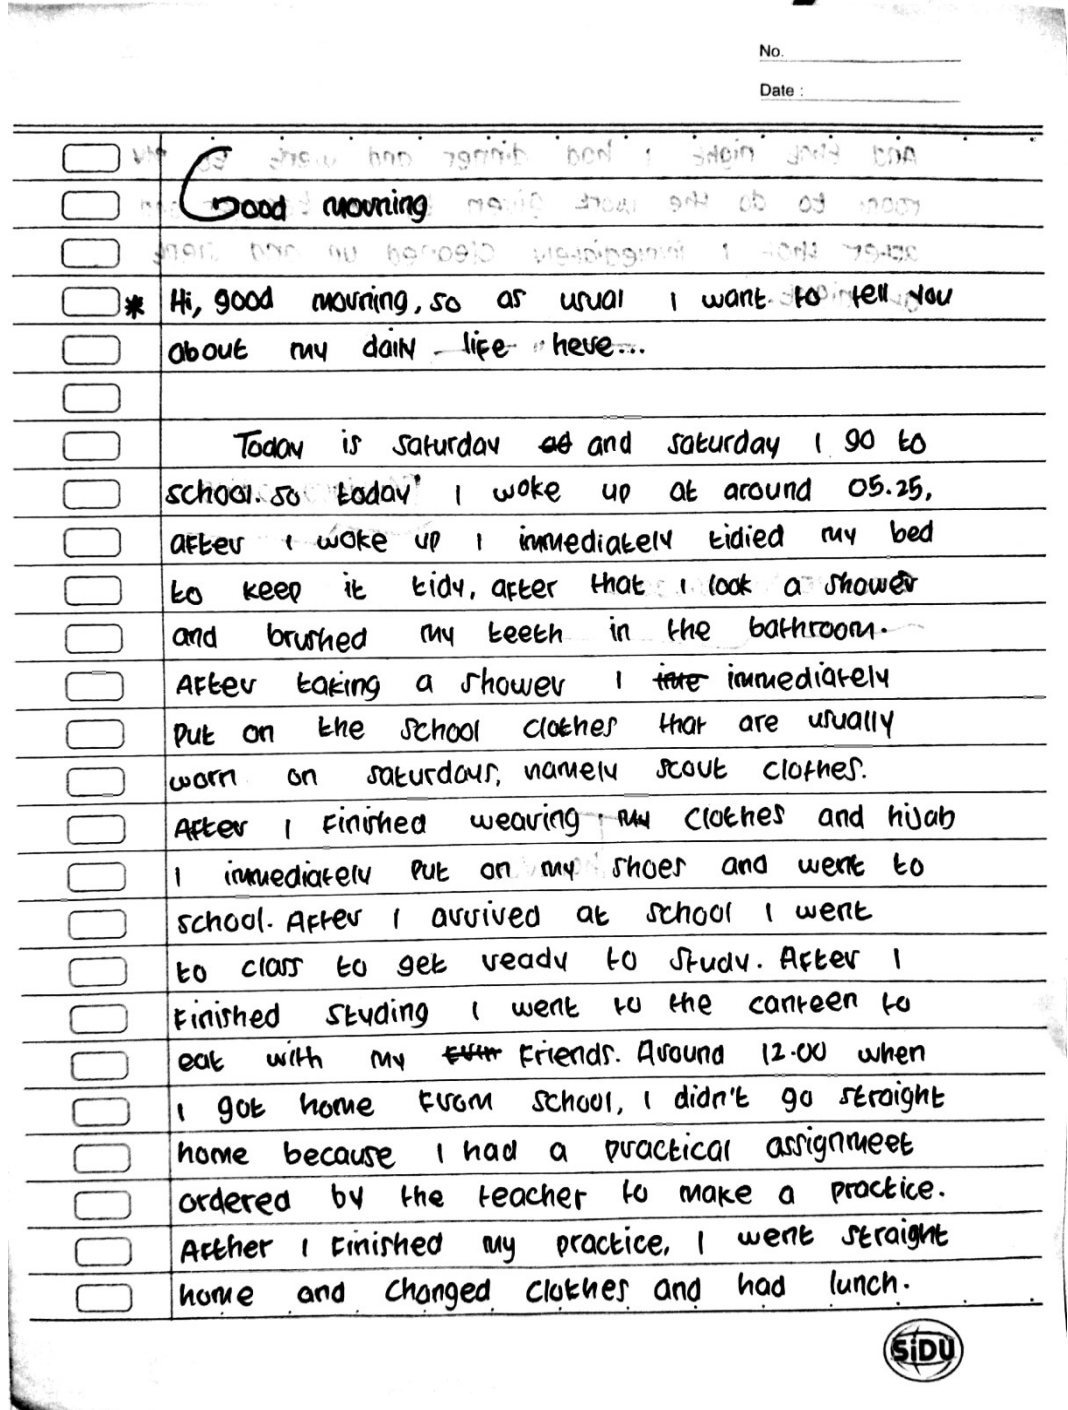 No.
Date :
Good mourning
* Hi, good mourning, so as usual I want to tell you
about my daily life here...
Today is saturday and saturday I go to
school. so today I woke up at around 05.25,
after I woke up I immediately tidied my bed
to keep it tidy, after that I look a shower
and brushed my teeth in the bathroom.
After taking a shower I immediately
put on the school clothes that are usually
worn on saturdays, namely scout clothes.
After I finished wearing my clothes and hijab
I immediately put on my shoes and went to
school. After I arrived at school I went
to class to get ready to study. After I
finished studing I went to the canteen to
eat with my friends. Around 12.00 when
I got home from school, I didn't go straight
home because I had a practical assignmeet
ordered by the teacher to make a practice.
Afther I finished my practice, I went straight
home and changed clothes and had lunch.
SiDU